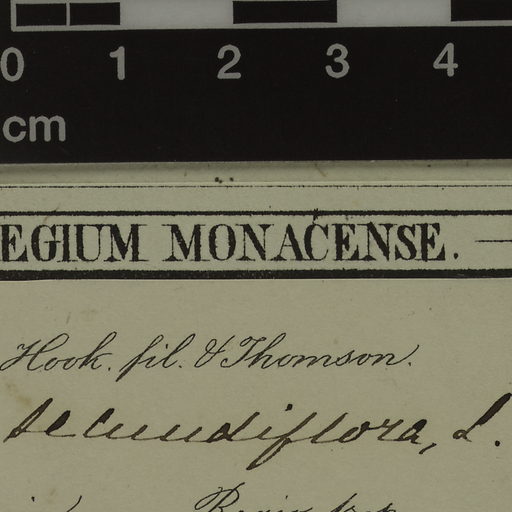 0 1 2 3 4
cm
EGIUM MONACENSE.
Hook. fil. & Thomson.
secundiflora, L.
Regio trop.